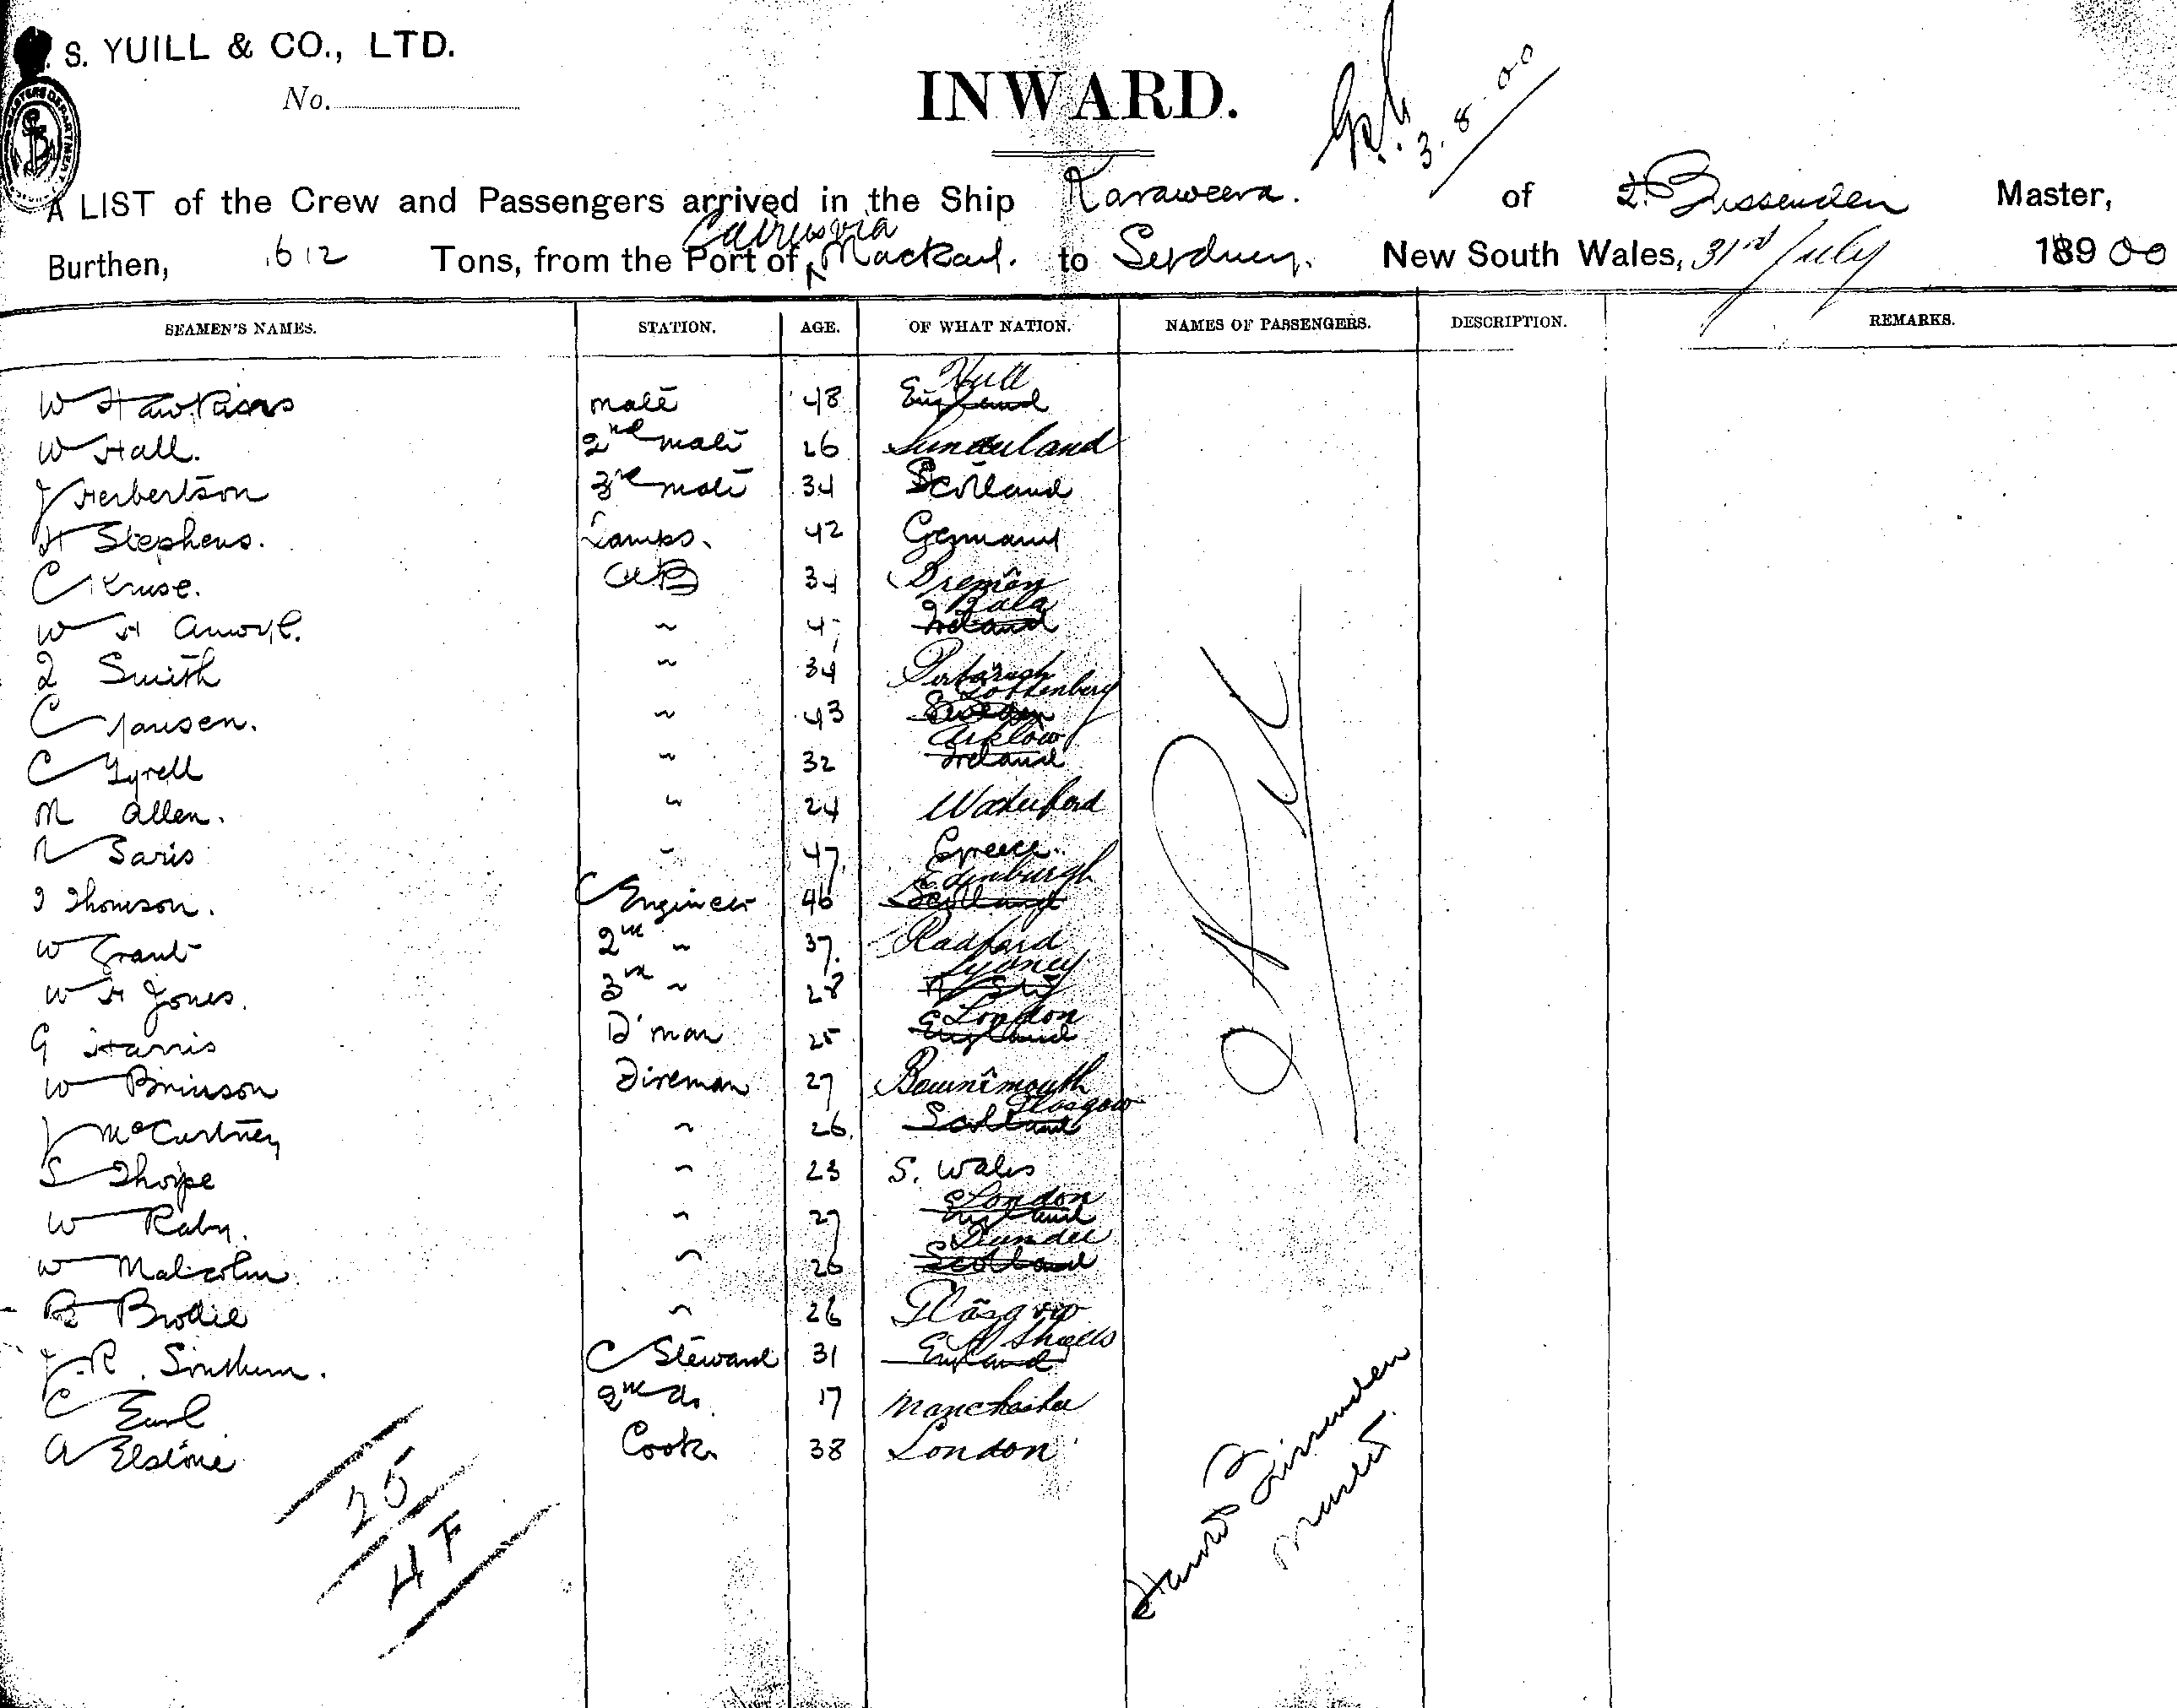 S. YUILL & CO., LTD.
No.
INWARD.
3.8.00
A LIST of the Crew and Passengers arrived in the Ship Karaweera. of Master,
Cairns via
Burthen, 612 Tons, from the Port of Mackay. to Sydney. New South Wales, 31st July 18900
SEAMEN'S NAMES. STATION. AGE. OF WHAT NATION. NAMES OF PASSENGERS. DESCRIPTION. REMARKS.
Hull
W Hawkins mate 48 England
W Hall. 2nd mate 26 Sunderland
J Herbertson 3rd mate 34 Scotland
H Stephens. Lamps. 42 Germany
C Kruse. AB 34 Bremen
Bala
W H " 4 Ireland
Smith " 34
Gottenberg
C Jansen. " 43 Sweden
Arklow
C Tyrell " 32 Ireland
M Allen. " 24 Waterford
Saris " 47. Greece.
Edinburgh
J Thomson. C Engineer 46 Scotland
W Grant 2nd " 37. Radford
Sydney
W H Jones. 3rd " 28
London
G Harris D'man 25 England
W Brinson Fireman 27 Bournemouth
Glasgow
J McCartney " 26. Scotland
S Thorpe " 23 S. Wales
London
W Raby. " 27 England
Dundee
W Malcolm " 26 Scotland
Brodie " 26 Glasgow
Shields
J.R. Southern. C Steward 31 England
C Earl 2nd do. 17 Manchester
A Elstone Cook 38 London
25
4F
Master